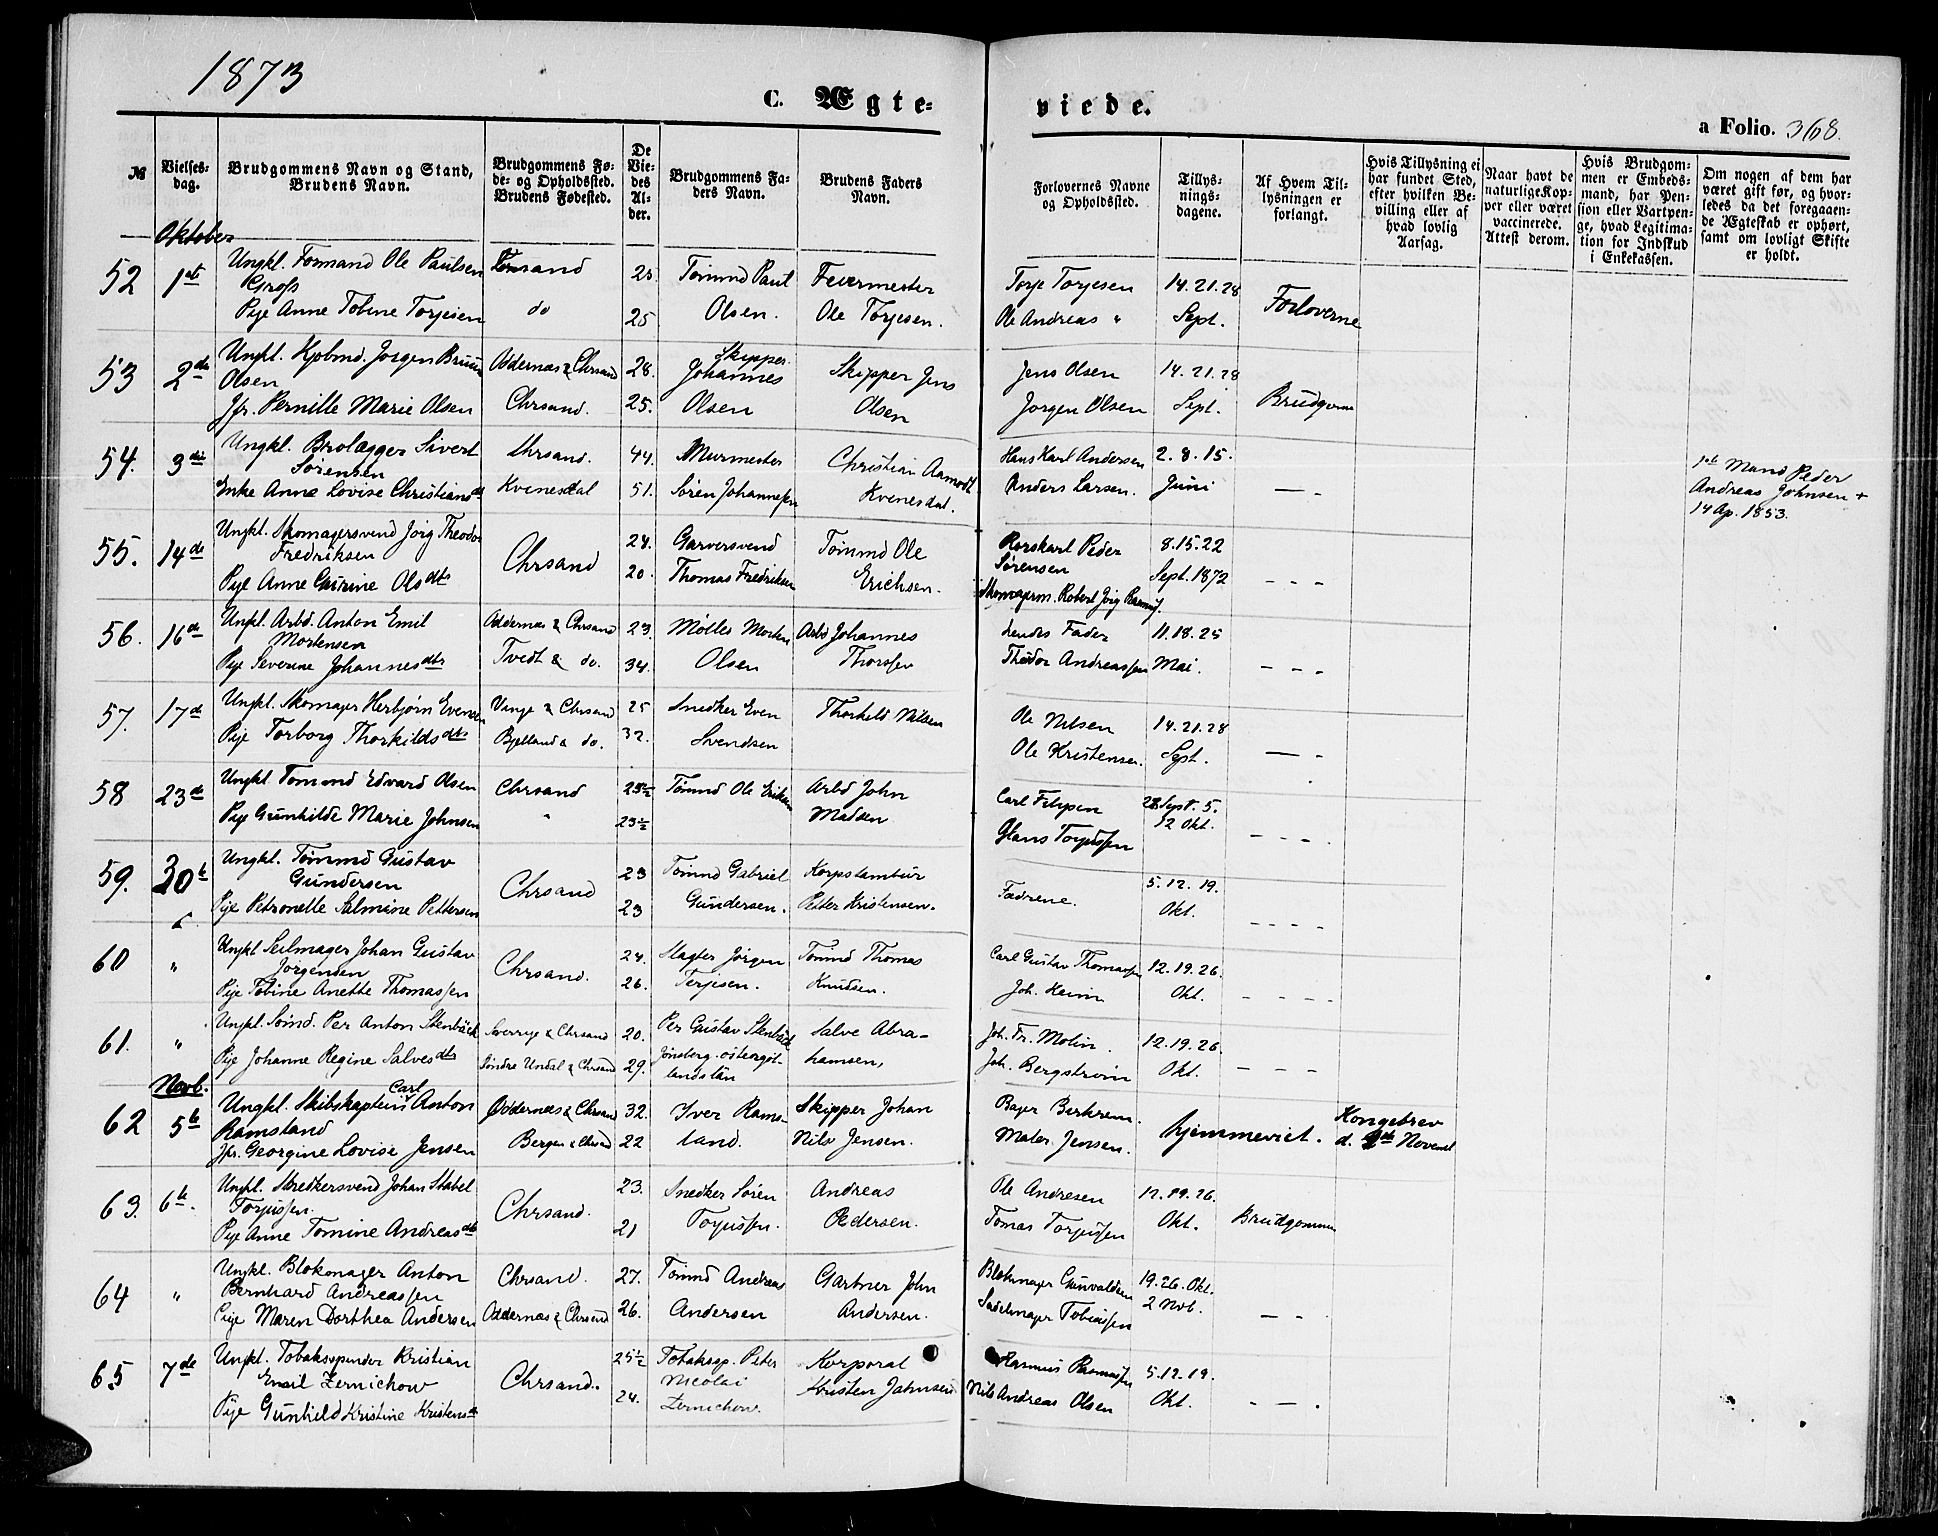 1873
C. Ægte-
viede.
a Folio. 368.
№
Vielses-
dag.
Brudgommens Navn og Stand,
Brudens Navn.
Brudgommens Fø-
de- og Opholdssted.
Brudens Fødested.
De
Vie-
des
Al-
der.
Brudgommens Fa-
ders Navn.
Brudens Faders
Navn.
Forlovernes Navne
og Opholdssted.
Tillys-
nings-
dagene.
Af Hvem Til-
lysningen er
forlangt.
Hvis Tillysning ei
har fundet Sted,
efter hvilken Be-
villing eller af
hvad lovlig
Aarsag.
Naar havt de
naturlige Kop-
per eller været
vaccinerede.
Attest derom.
Hvis Brudgom-
men er Embeds-
mand, har Pen-
sion eller Vartpen-
ge, hvad Legitima-
tion for Indskud
i Enkekassen.
Om nogen af dem har
været gift før, og hvor-
ledes da det foregaaen-
de Ægteskab er ophørt,
samt om lovligt Skifte
er holdt.
Oktober
52 1ste Ungkl. Formand Ole Paulsen
Gross
Pige Anne Tobine Torjesen
do
25
Tømmd Paul
Olsen.
Feiermester
Ole Torjesen.
Torje Torjesen
Ole Andreas "
14. 21. 28
Sept.
Forloverne
53 2den Ungkl. Kjøbmd. Jørgen Bruun
Olsen
Jfr. Pernille Marie Olsen
Oddernæs & Chrsand
Chrsand.
28.
25.
Skipper
Johannes
Olsen
Skipper Jens
Olsen
Jens Olsen
Jørgen Olsen
14. 21. 28
Sept.
Brudgom
54. 3die Ungkl. Brolægger Sivert
Sørensen
Enke Anne Lovise Christiansd
Chrsand.
Kvinesdal
44.
51.
Murmester
Søren Johannessen
Christian Aamodt
Kvinesdal.
Hans Karl Andersen
Anders Larsen.
2. 8. 15.
Juni
— -
1ste Mand Peder
Andreas Johnsen +
14 Ap. 1853.
55. 14de Ungkl. Skomagersvend Jørg Theodor
Fredriksen
Pige Anne Olsdtr
Chrsand
24.
20.
Garversvend
Thomas Fredriksen
Tømmd Ole
Erichsen.
Peder
Sørensen
Skomagerm. Robert Jørg
8. 15. 22
Sept. 1872
- - -
56. 16de Ungkl. Arbd. Anton Emil
Mortensen
Pige Severine Johannesdtr
Oddernæs & Chrsand
Tvedt & do.
23.
34.
Møller Morten
Olsen
Arbd Johannes
Thorsen
Fader
Theodor Andreassen
11. 18. 25
Mai.
- - -
57. 17de Ungkl. Skomager Herbjørn Evensen
Pige Torborg Thorkildsdtr
Vinje & Chrsand
Bjelland & do.
25
32.
Snedker Even
Svendsen
Thorkild Nilsen
Ole Nilsen
Ole Kristensen.
14. 21. 28
Sept.
— -
58 23de Ungkl. Tømmd Edvard Olsen
Pige Gunhilde Marie Johnsen
Chrsand
"
23½
Tømmd Ole Eriksen
Arbd John
Madsen
Carl
Hans Torjussen
28 Sept. 5.
12 Okt.
- - -
59. 30te Ungkl. Tømmd Gustav
Gundersen
Pige Petronelle Selmine Pettersen
Chrsand
23
23
Tømmd Gabriel
Gundersen.
Korpstambur
Petter Kristensen.
Fædrene.
5. 12. 19.
Okt.
- - -
60 " Ungkl Seilmager Johan Gustav
Jørgensen
Pige Tobine Anette Thomassen
Chrsand.
24.
26.
Slagter Jørgen
Terjesen.
Tømmd Thomas
Knudsen.
Carl Gustav Thomassen
Joh. Heim
12. 19. 26.
Okt.
- - - -
61. " Ungkl. Per Anton Stenbäck
Pige Johanne Regine Salvesdtr
Sverrige & Chrsand
Søndre Undal & Chrsand
20.
29.
Per Gustav Stenbäck
Jonsberg. östergöt-
landslän
Salve Abra-
hamsen,
Joh. Fr. Molin.
Joh. Bergström
12. 19. 26.
Okt.
- - -
Novb.
62 5te Ungkl. Skibskaptein Carl Anton
Ramsland
Jfr. Georgine Lovise Jensen
Oddernæs & Chrsand
Bergen & Chrsand
32.
22
Iver Rams-
land.
Skipper Johan
Nils Jensen.
Bager
Maler Jensen.
hjemmeviet.
Kongebrev
d. Novemb
63. 6te. Ungkl. Johan Stabel
Torjussen.
Pige Anne Tomine Andreasdtr
Chrsand.
23.
21
Snedker Søren
Torjussen.
Andreas
Pedersen.
Ole Andresen
Tomas Torjussen
12. 19. 26.
Okt.
Brudgommen
64 " Ungkl. Blokmager Anton
Bernhard Andreassen
Pige Maren Dorthea Andersen
Chrsand.
Oddernæs & Chrsand
27.
26.
Tømmd Andreas
Andersen
Gartner John
Andersen.
Blokmager Gunvaldsen
Sadelmager Tobiassen
19. 26. Okt.
2 Nvb.
— -
65 7de Ungkl. Tobaksspinder Kristian
Emil Zernichow
Pige Gunhild Kristine Kristensd
Chrsand.
25½
24.
Tobakssp. Peter
Nicolai
Zernichow.
Korporal
Kristen Jahnsen
Rasmus Rasmussen
Nils Andreas Olsen
5. 12. 19.
Okt.
- — .